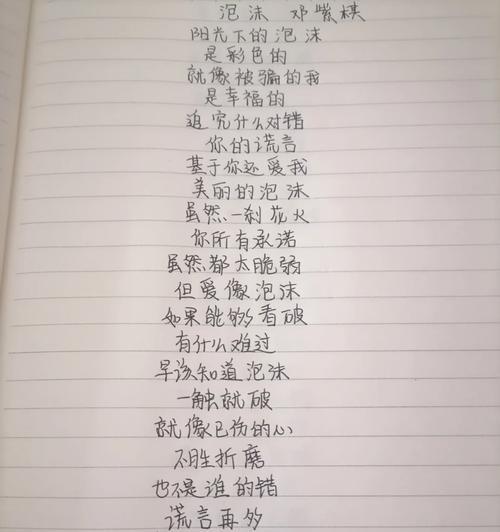 泡沫 邓紫棋
阳光下的泡沫
是彩色的
就像被骗的我
是幸福的
追究什么对错
你的谎言
基于你还爱我
美丽的泡沫
虽然一刹花火
你所有承诺
虽然都太脆弱
但爱像泡沫
如果能够看破
有什么难过
早该知道泡沫
一触就破
就像已伤的心
不胜折磨
也不是谁的错
谎言再多